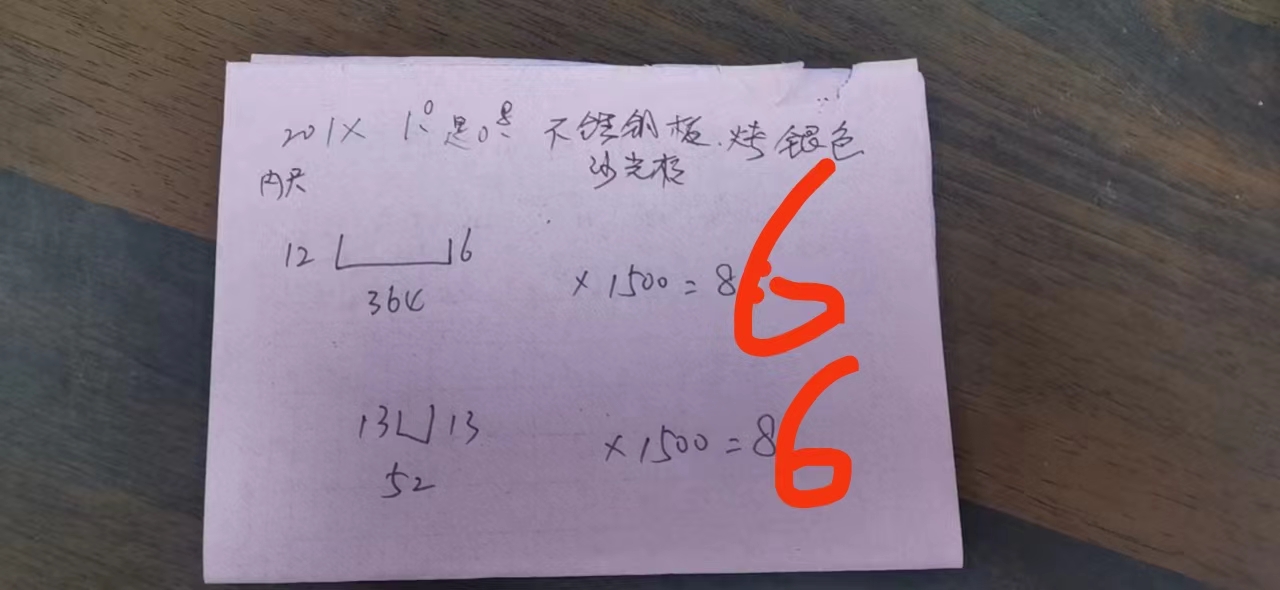 201X 1.0 是0.8 不锈钢板.烤银色
内尺 沙光板
12 16
364
× 1500 = 86
13 13
52
× 1500 = 86